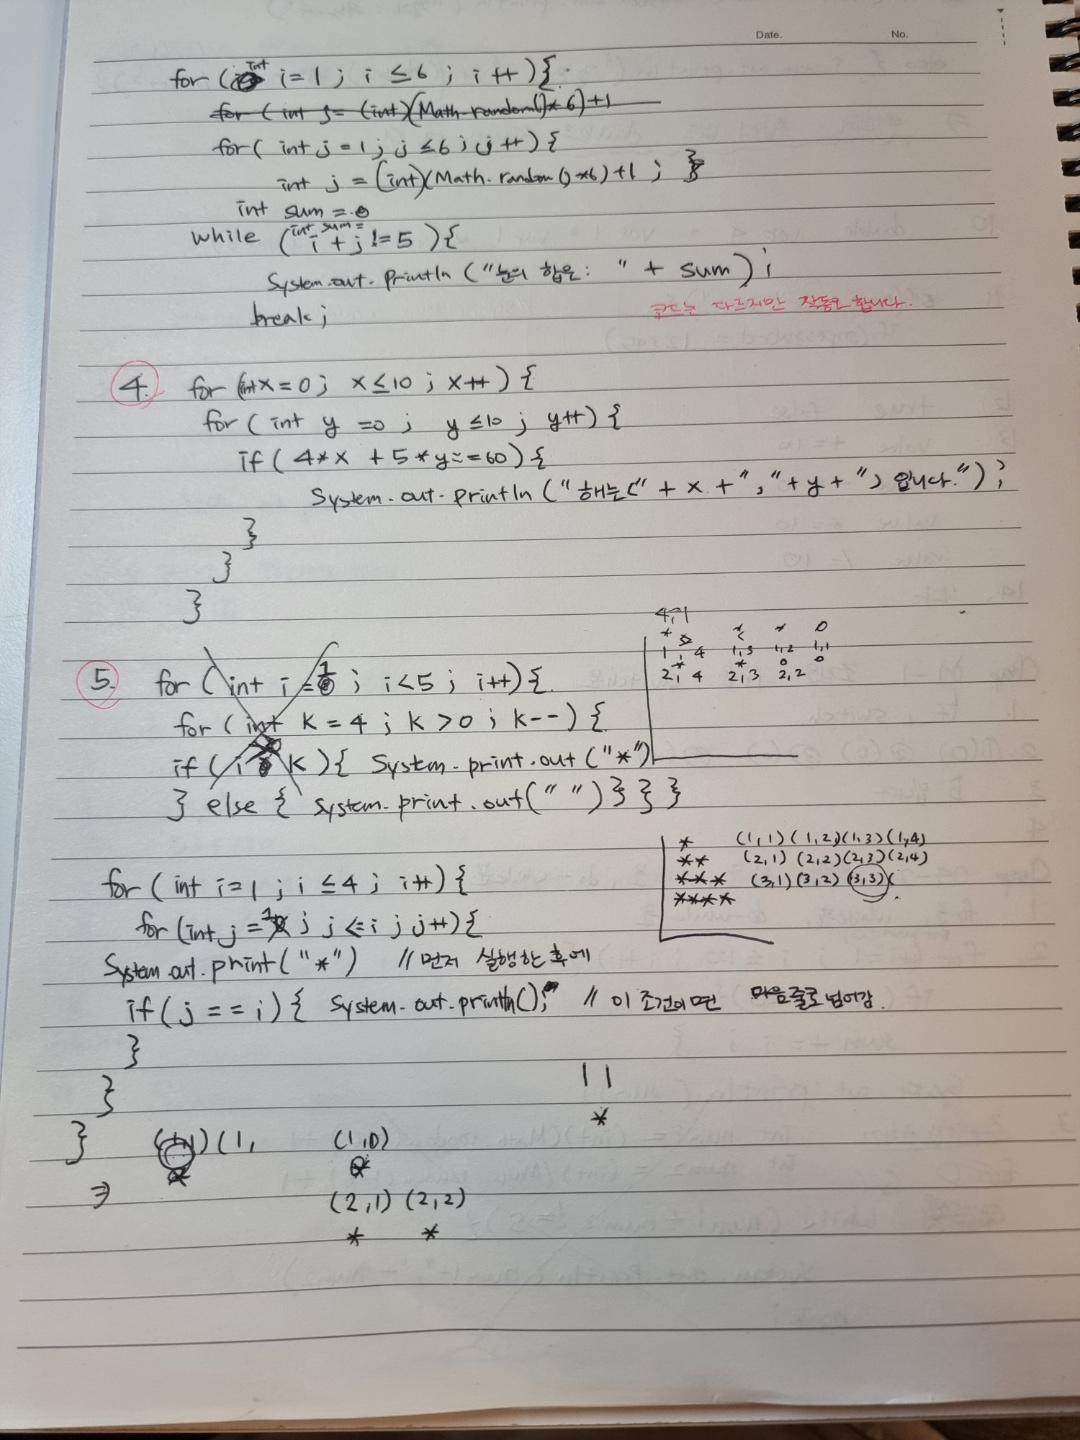 Date. No.
for (int i=1 ; i ≤6 ; i ++){
for ( int j= (int)(Math.random()* 6)+1
for( int j =1 ; j ≤6 ; j ++){
int j = (int)(Math. random() *6) +1 ; }
int sum = 0
int sum=
while ( i + j != 5 ){
System.out. println ("눈의 합은: " + sum) ;
break ;
코드는 다르지만 작동은 합니다.
4. for (int x=0 ; x≤10 ; x++ ) {
for ( int y =0 ; y ≤10 ; y++) {
if ( 4*x + 5 * y ==60) {
System.out.println ("해는(" + x + "," + y + ") 입니다.") ;
}
}
}
4,1
* * * 0
1, 4 1,3 1,2 1,1
* * 0 0
2, 4 2,3 2,2
5. for ( int i =1 ; i<5 ; i++){
for ( int k = 4 ; k >0 ; k--) {
if ( i k ){ System.print.out ("*")
} else { system.print.out(" ")} } }
* (1,1) (1,2)(1,3)(1,4)
** (2,1) (2,2)(2,3)(2,4)
*** (3,1)(3,2) (3,3)(
****
for ( int i=1 ; i ≤ 4 ; i++){
for (int j =1 ; j <= i ; j++){
System.out.print("*") // 먼저 실행한 후에
if( j == i ) { System.out.println(); // 이 조건이면 다음줄로 넘어감.
}
}
}
1 1
*
(1,1)(1, (1,0)
*
⇒ (2,1) (2,2)
* *